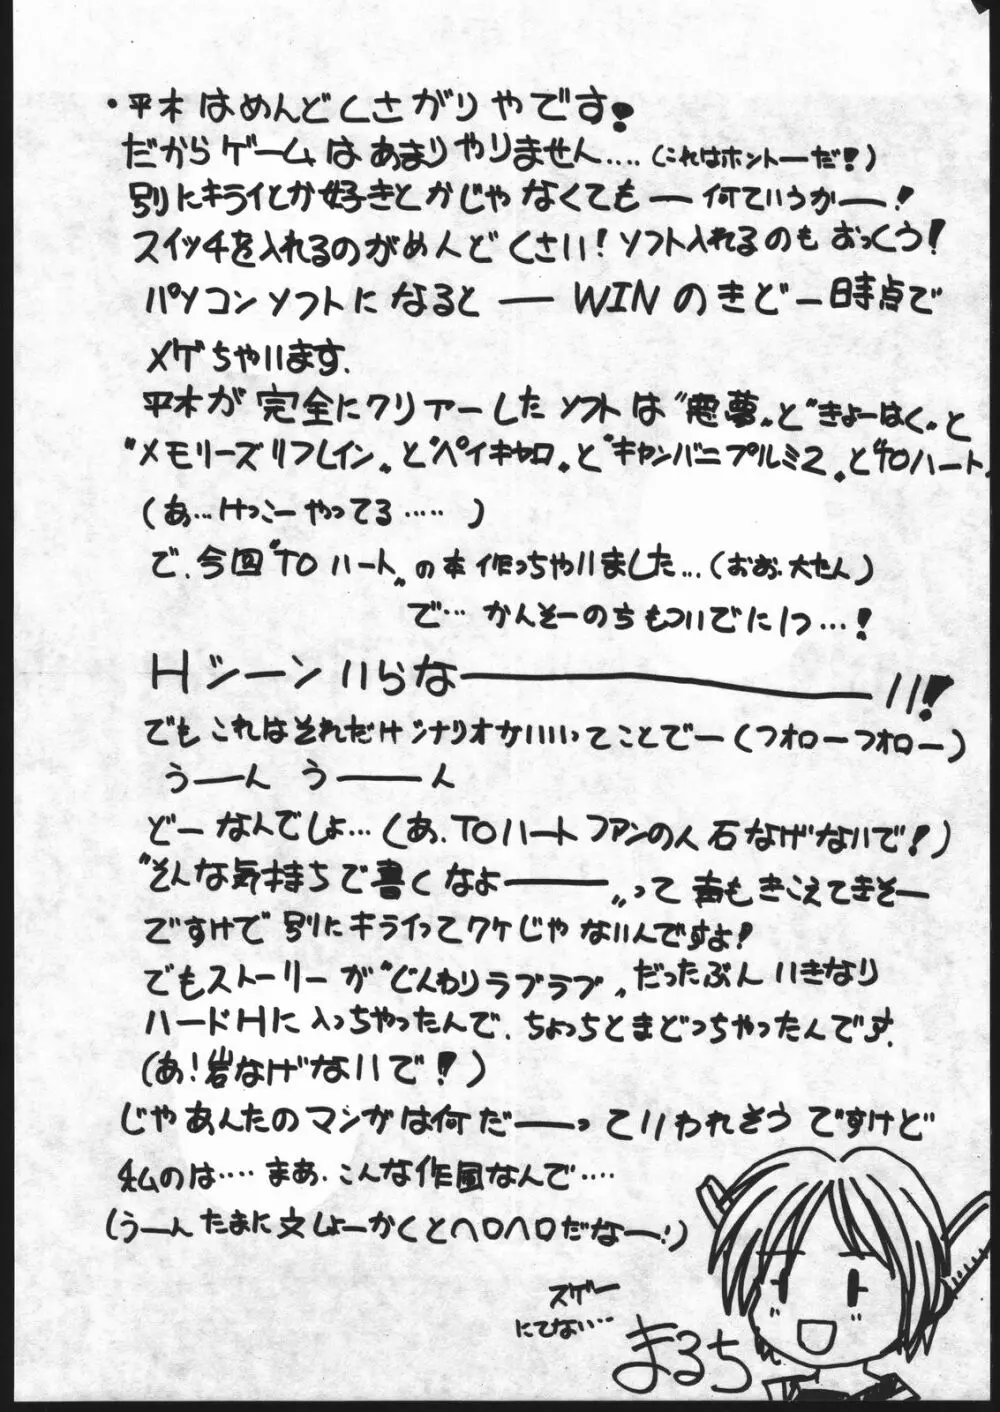 ・平木はめんどくさがりやです!
だからゲームはあまりやりません‥‥(これはホントーだ!)
別にキライとか好きとかじゃなくてもー何ていうかー!
スイッチを入れるのがめんどくさい!ソフト入れるのもおっくう!
パソコンソフトになるとーWINのきどー時点で
メゲちゃいます.
平木が完全にクリアーしたソフトは〝悪夢〟と〝きょーはく〟と
〝メモリーズリフレイン〟と〝ペイキャロ〟と〝キャンバニプルミ2〟と〝TOハート〟
(あ…けっこーやってる‥‥‥)
で、今回〝TOハート〟の本作っちゃいました…(おお、大たん)
で… かんそーのちもついでに1つ…!
Hシーンいらなーーーーーい!
でもこれはそれだけシナリオがいいってことでー(フォローフォロー)
うーん うーーん
どーなんでしょ…(あ、TOハートファンの人石なげないで!)
〝そんな気持ちで書くなよーーー〟って声もきこえてきそー
ですけで別にキライってワケじゃないんですよ!
でもストーリーが〝じんわりラブラブ〟だったぶんいきなり
ハードHに入っちゃったんで、ちょっちとまどっちゃったんです.
(あ!岩なげないで!)
じゃあんたのマンガは何だーーっていわれそうですけど
私のは‥‥まあ、こんな作風なんで‥‥
(うーんたまに文しょーかくとヘロヘロだなー!)
スゲー
にてない‥
まるち